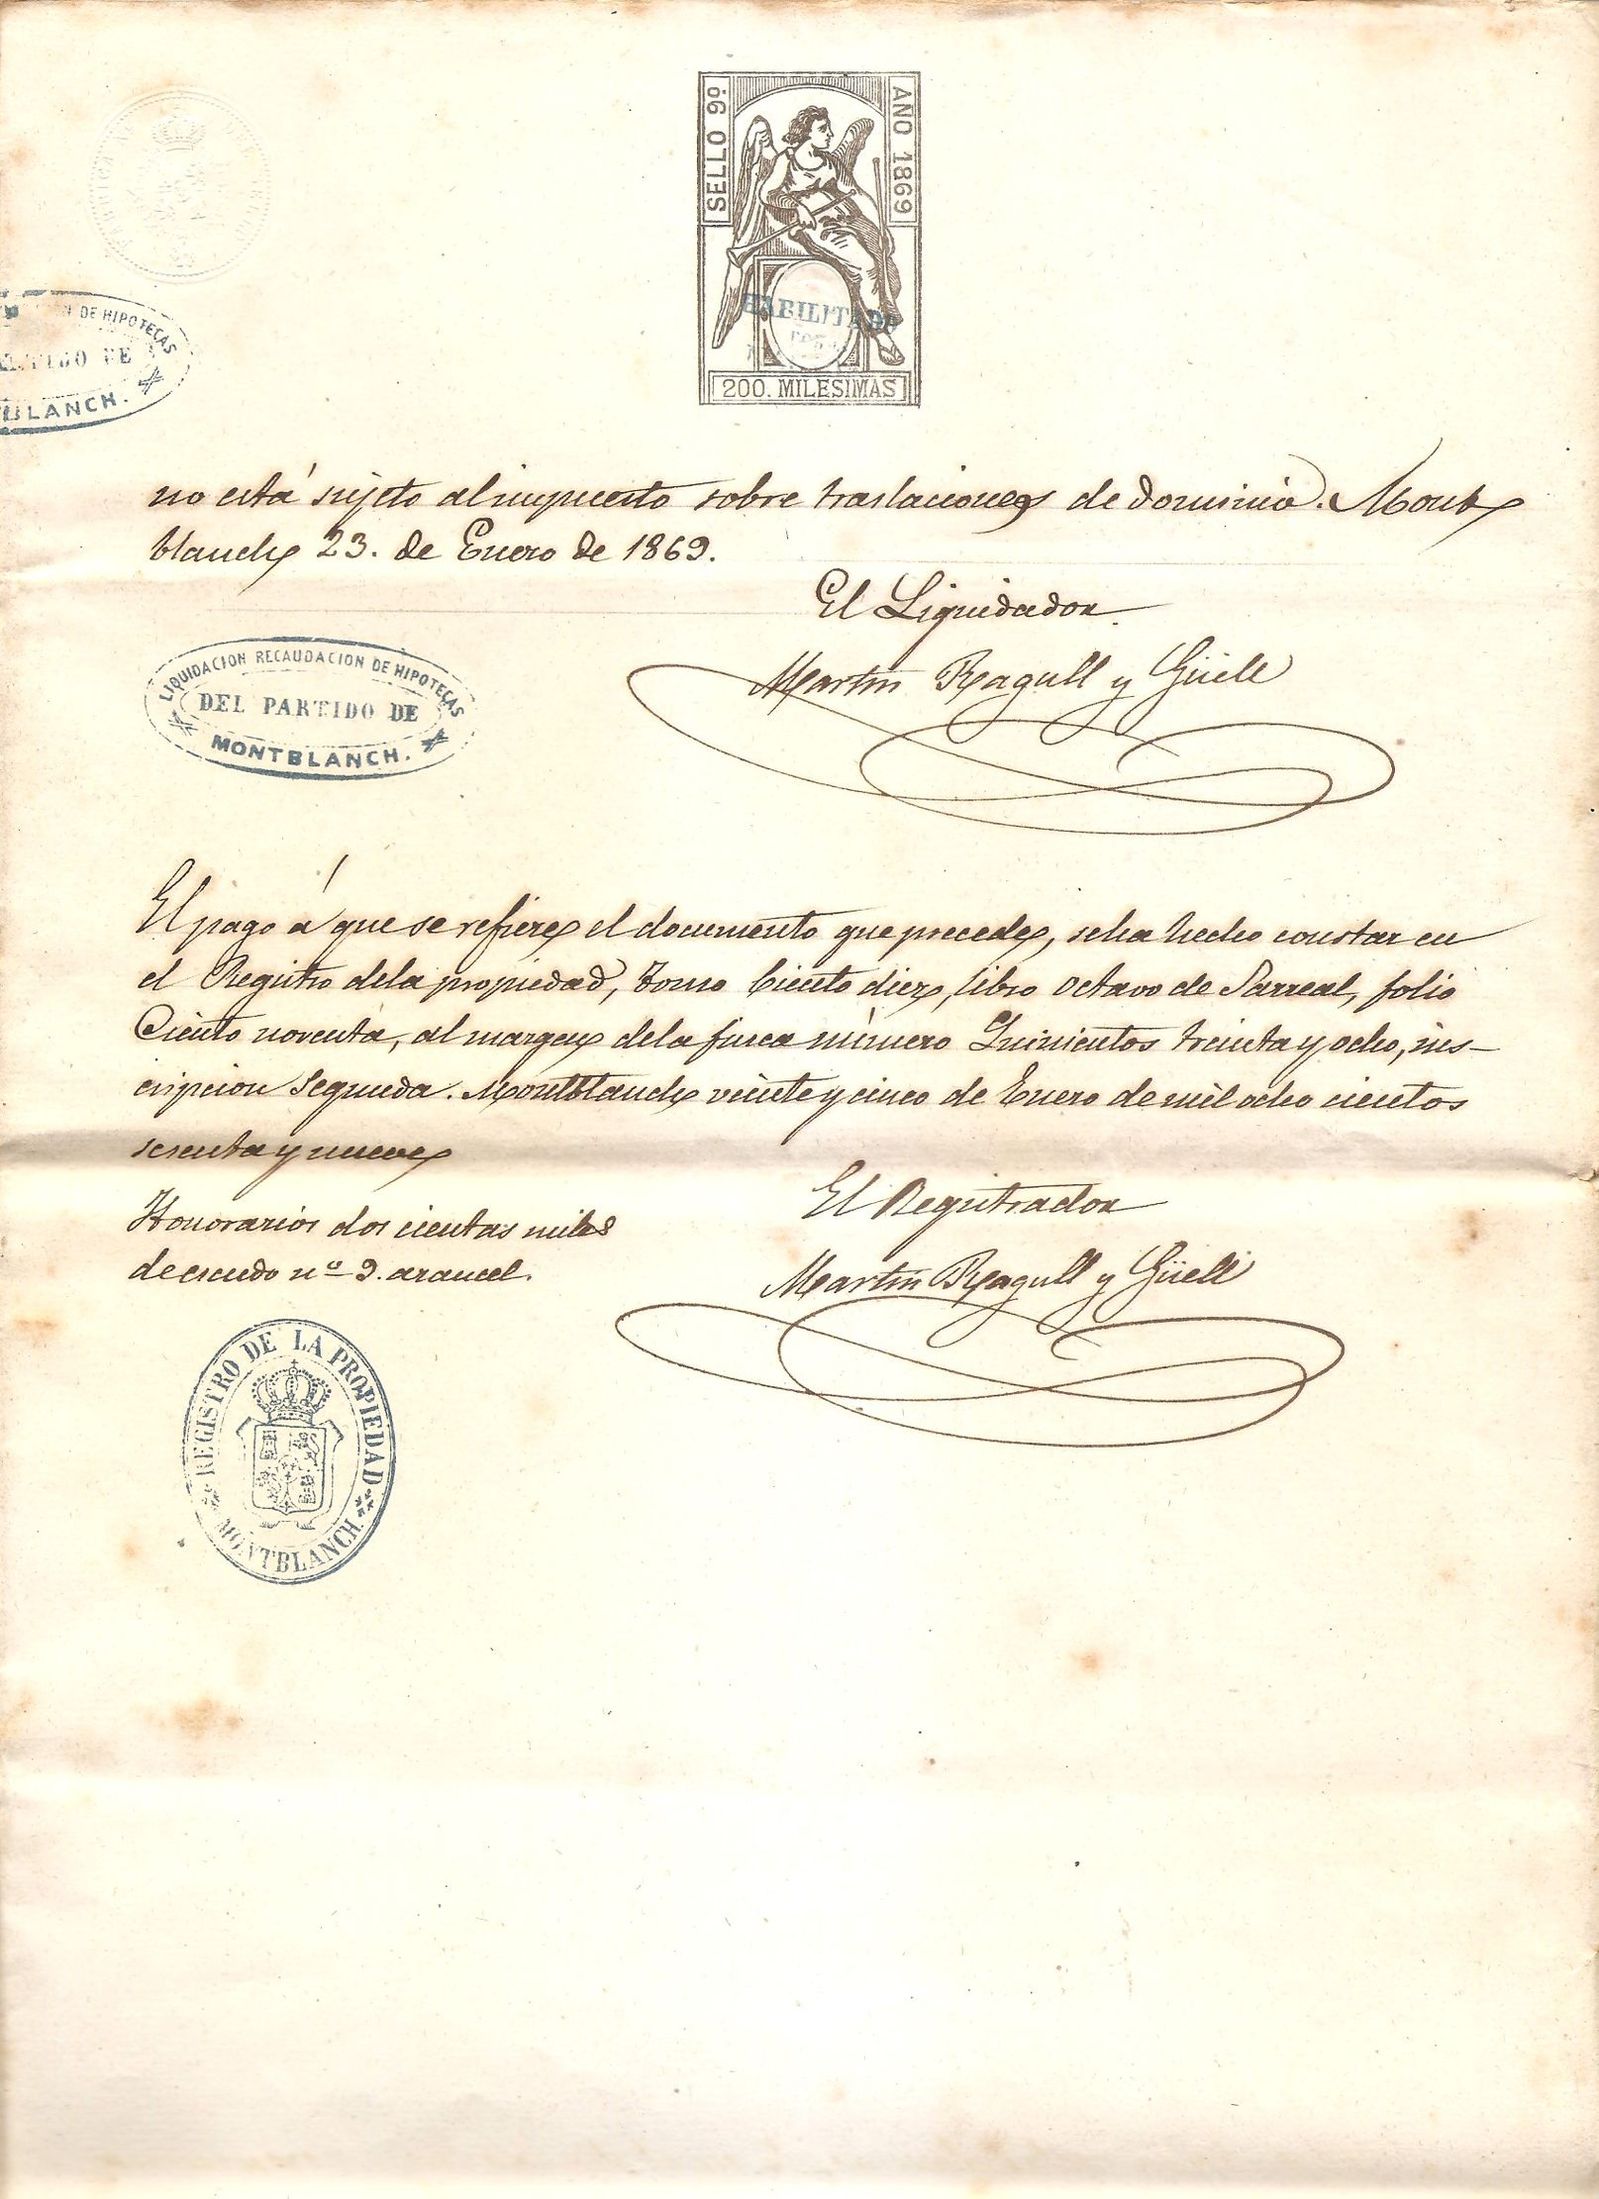 SELLO 9º
AÑO 1869
HABILITADO
POR
200. MILESIMAS
DE HIPOTECAS
PARTIDO DE
BLANCH.
no está sujeto al impuesto sobre traslaciones de dominio. Mont
blanch 23. de Enero de 1869.
El Liquidador
Martin Ragull y Güell
LIQUIDACION RECAUDACION DE HIPOTECAS
DEL PARTIDO DE
MONTBLANCH.
El pago á que se refiere el documento que precede, se ha hecho constar en
el Registro de la propiedad, tomo Ciento diez, libro octavo de Sarreal, folio
Ciento noventa, al margen de la finca número Quinientos treinta y ocho, ins-
cripcion Segunda. Montblanch veinte y cinco de Enero de mil ocho cientos
sesenta y nueve
El Registrador
Honorarios dos cientas miles
de escudo nº 9. arancel.
Martin Ragull y Güell
REGISTRO DE LA PROPIEDAD
MONTBLANCH.